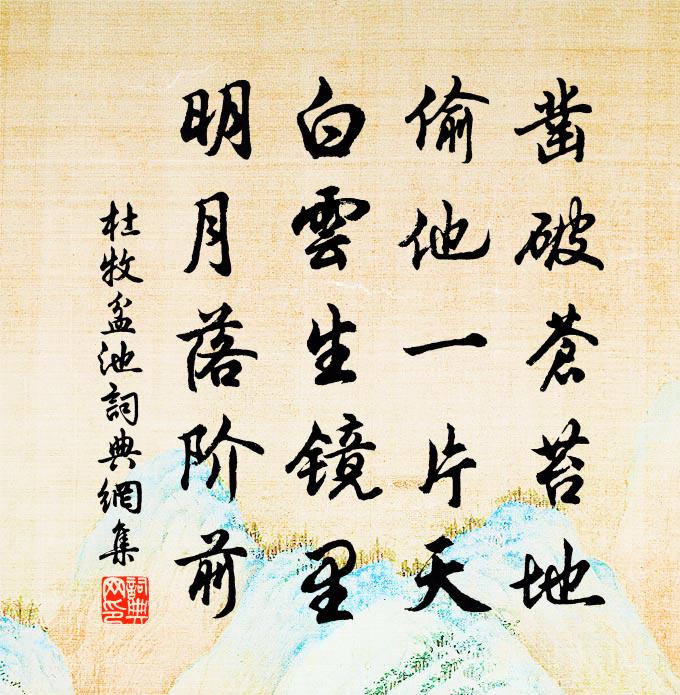 凿破蒼苔地
偷他一片天
白雲生镜里
明月落阶前
杜牧盆池詞典網集
詞典网印